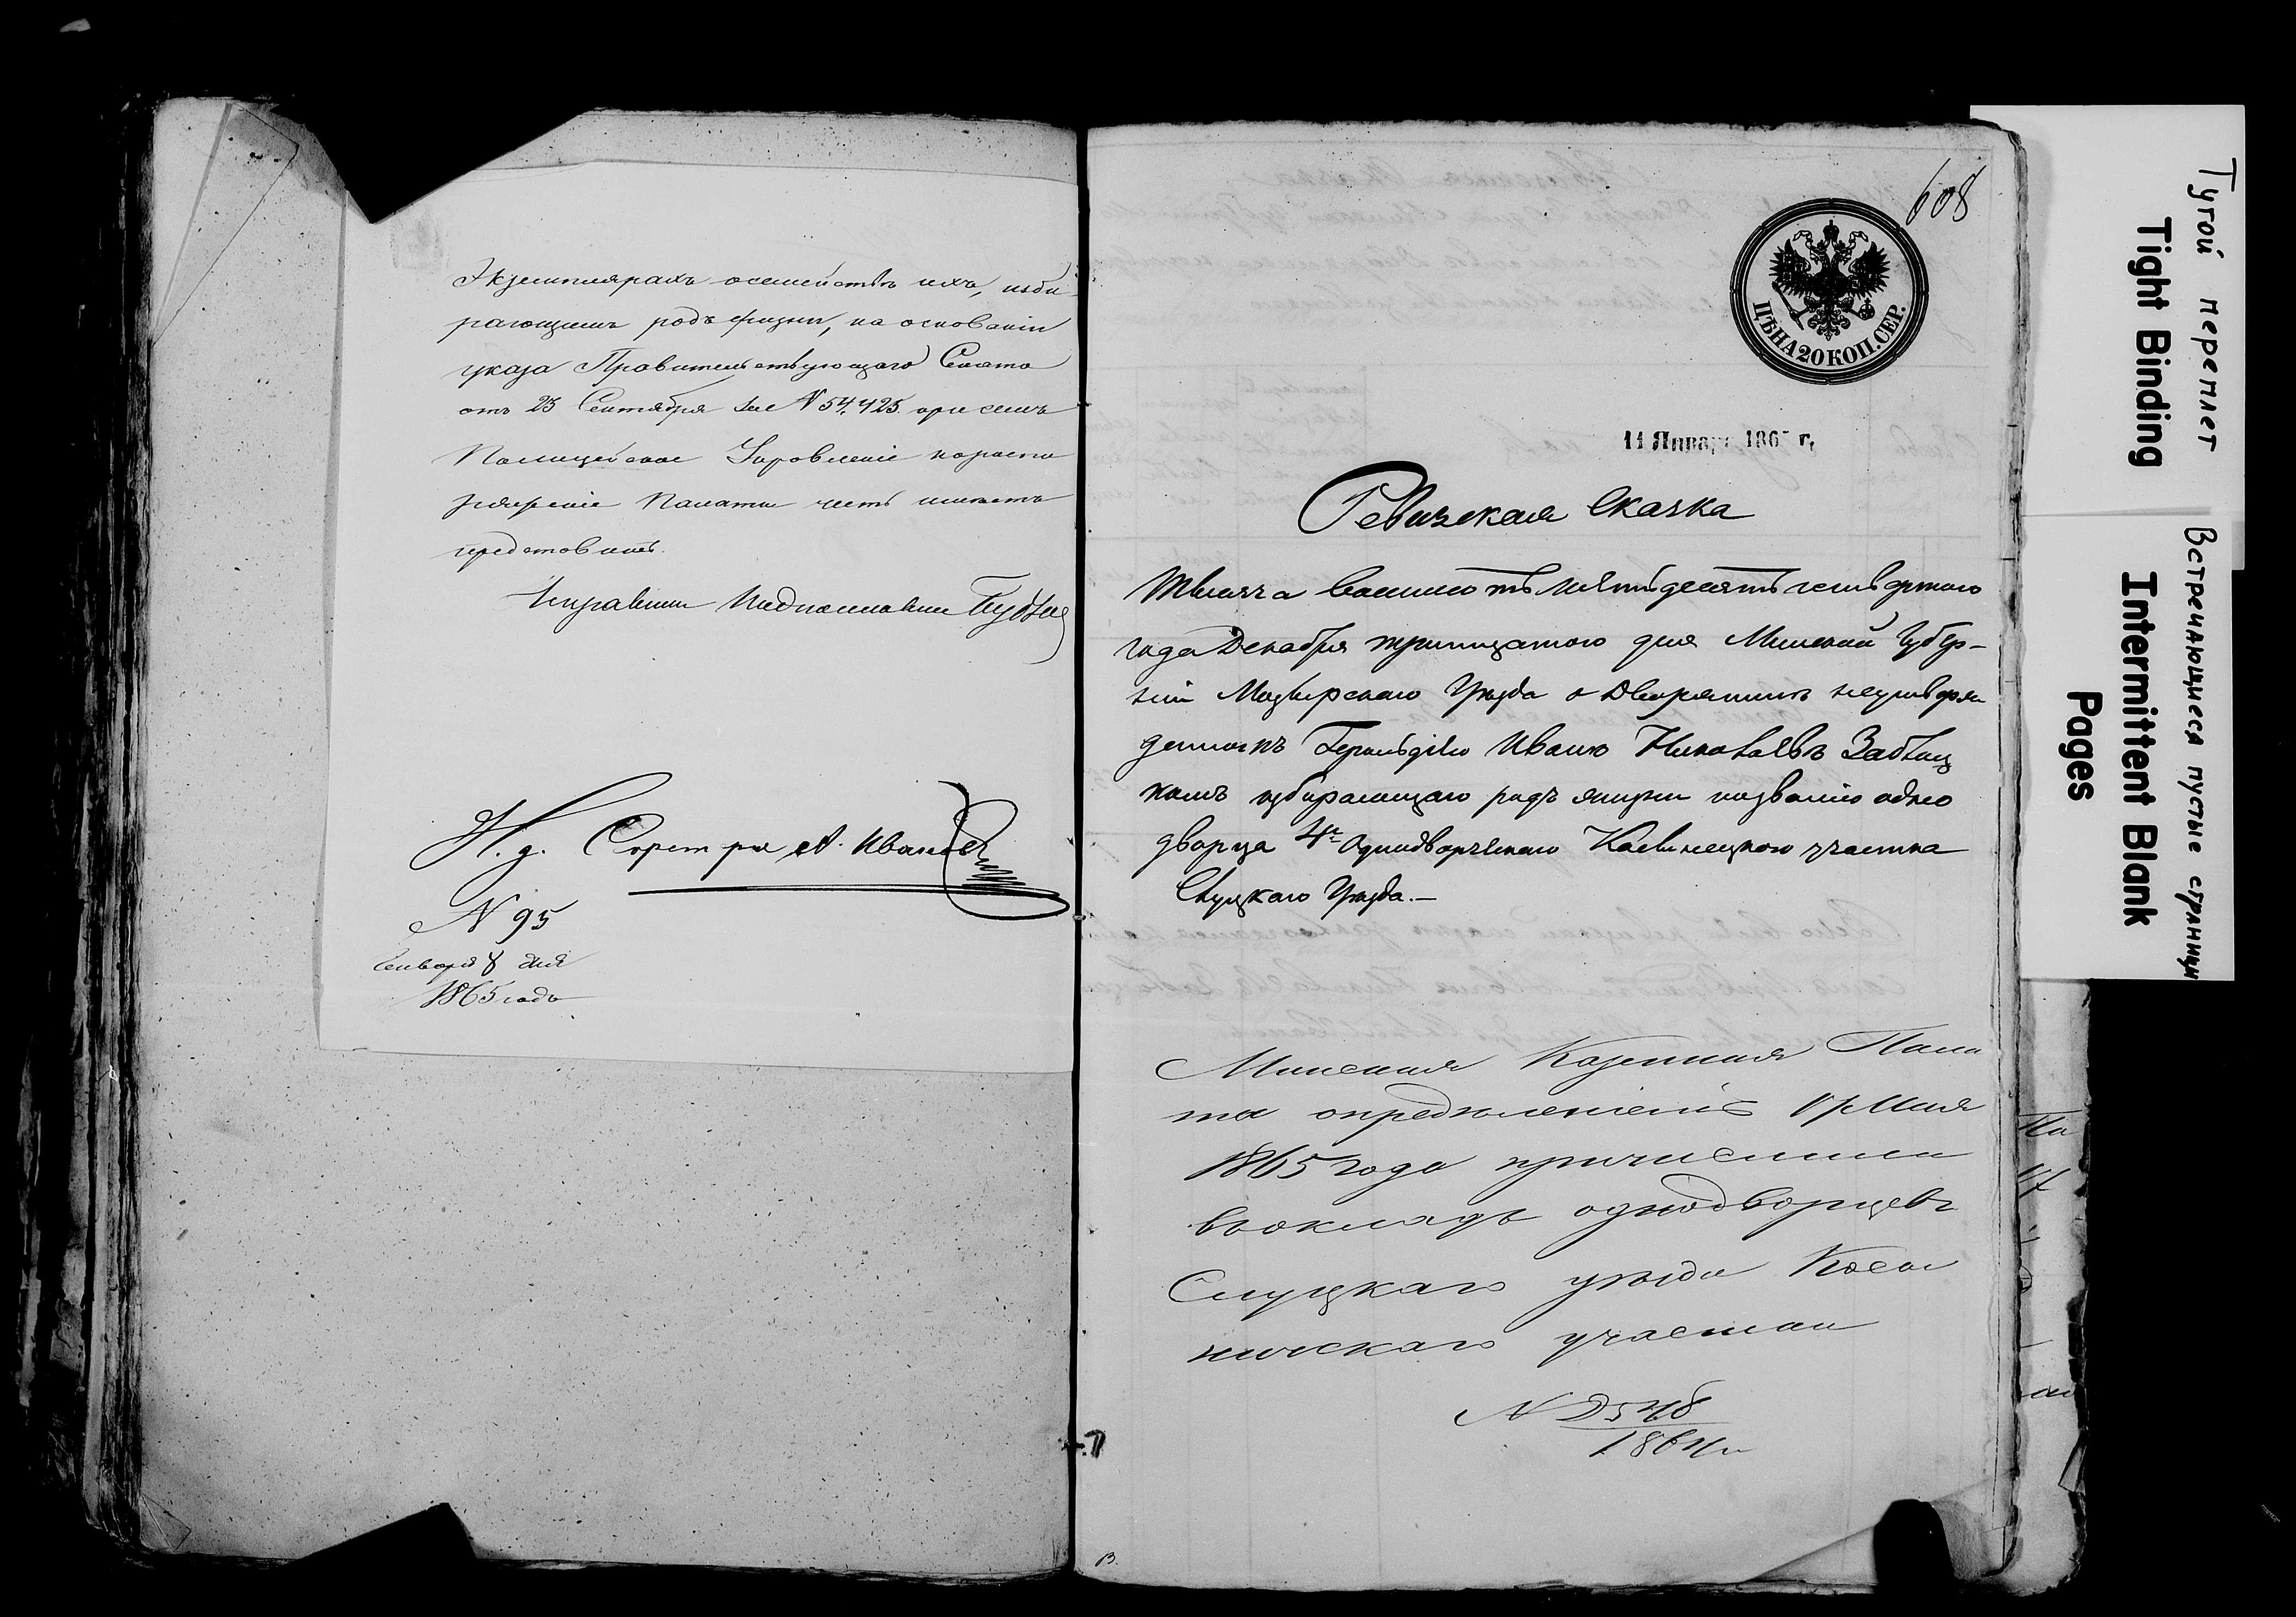 Экземплярахъ осемействѣ ихъ, изби-
рающимъ родъ жизни, на основаніи
указа Правительствующаго Сената
отъ 25 Сентября за N 54,425 при семъ
Полицейское Управленіе нараспо
ряженіе Палаты честь имѣетъ
представить.
Исправникъ
И. д. Секретаря А. Иванов
N 95
Генваря 8 дня
1865 года
608
ЦѢНА 20 КОП. СЕР.
11 Января 186 г.
Ревизская Сказка
Тысяча Восемьсотъ шестьдесятъ четвертого
года Декабря тритцатого дня Минской Губер-
ніи Мозырскаго Уѣзда о Дворянинѣ неутверж
денномъ Герольдіею Иванѣ Николаевѣ Заблоц
комъ избирающаго родъ жизни позванію одно
дворца 4го Однодворческаго участка
Слуцкаго Уѣзда.—
Минская Казенная Пала
та опредѣленіемъ Мая
1865 года причислила
въокладъ однодворцевъ
Слуцкаго уѣзда
участка
N
1864 г.
Тугой переплет
Tight Binding
Встречающиеся пустые страницы
Intermittent Blank
Pages